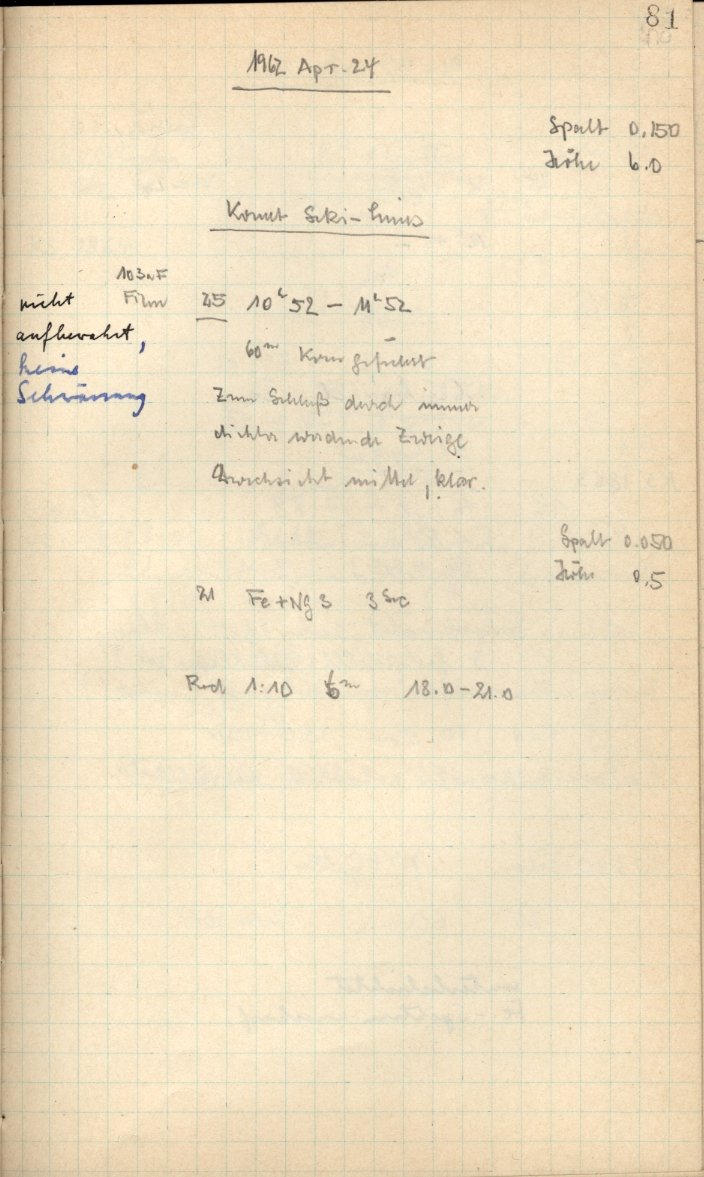 81
1962 Apr. 24
Spalt 0.150
Höhe 6.0
Komet Seki-Lines
103aF
nicht Film 25 10h52 – 11h52
aufbewahrt,
60m Kern geführt
keine
Schwärzung
Zum Schluß durch immer
dichter werdende Zweige
Durchsicht mittel, klar.
Spalt 0.050
Höhe 0,5
Fe + Ng 3 3 Sec
Red 1:10 18.0–21.0